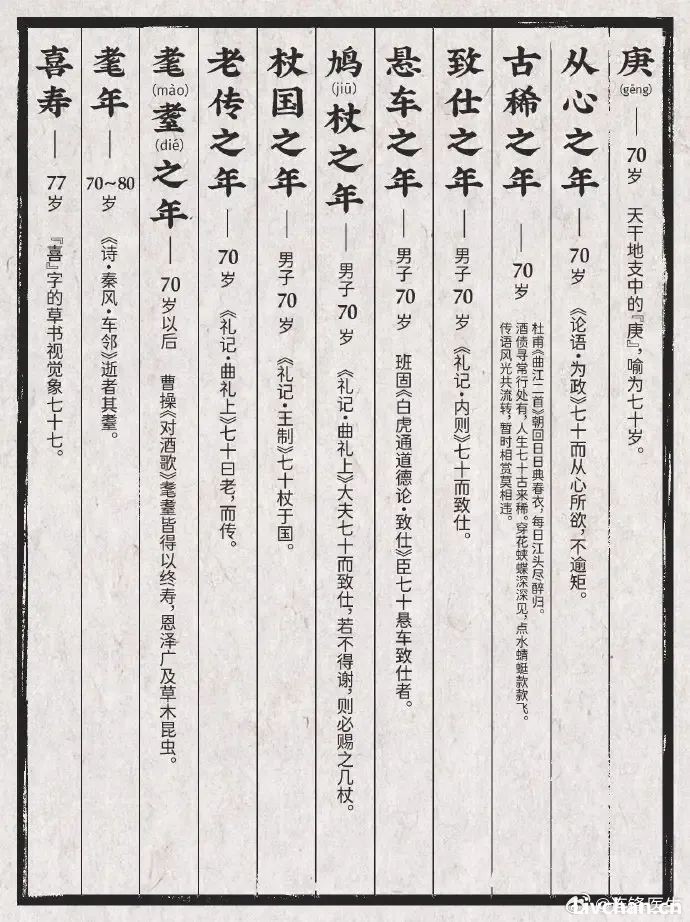 庚(gēng)——70岁 天干地支中的『庚』，喻为七十岁。
从心之年——70岁 《论语·为政》七十而从心所欲，不逾矩。
古稀之年——70岁 杜甫《曲江二首》朝回日日典春衣，每日江头尽醉归。
酒债寻常行处有，人生七十古来稀。穿花蛱蝶深深见，点水蜻蜓款款飞。
传语风光共流转，暂时相赏莫相违。
致仕之年——男子70岁 《礼记·内则》七十而致仕。
悬车之年——男子70岁 班固《白虎通道德论·致仕》臣七十悬车致仕者。
鸠(jiū)杖之年——男子70岁 《礼记·曲礼上》大夫七十而致仕，若不得谢，则必赐之几杖。
杖国之年——男子70岁 《礼记·王制》七十杖于国。
老传之年——70岁 《礼记·曲礼上》七十曰老，而传。
耄(mào)耋(dié)之年——70岁以后 曹操《对酒歌》耄耋皆得以终寿，恩泽广及草木昆虫。
耄年——70~80岁 《诗·秦风·车邻》逝者其耋。
喜寿——77岁 『喜』字的草书视觉象七十七。